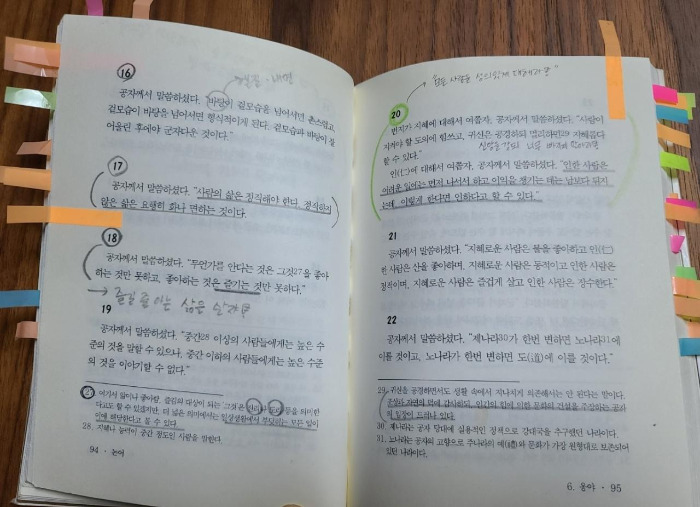 16
본질·내면
공자께서 말씀하셨다. "바탕이 겉모습을 넘어서면 촌스럽고,
겉모습이 바탕을 넘어서면 형식적이게 된다. 겉모습과 바탕이 잘
어울린 후에야 군자다운 것이다."
17
공자께서 말씀하셨다. "사람의 삶은 정직해야 한다. 정직하지
않은 삶은 요행히 화나 면하는 것이다.
18
공자께서 말씀하셨다. "무언가를 안다는 것은 그것27을 좋아
하는 것만 못하고, 좋아하는 것은 즐기는 것만 못하다."
→ 즐길 줄 아는 삶을 살거라
19
공자께서 말씀하셨다. "중간28 이상의 사람들에게는 높은 수
준의 것을 말할 수 있으나, 중간 이하의 사람들에게는 높은 수준
의 것을 이야기할 수 없다."
27. 여기서 앎이나 좋아함, 즐김의 대상이 되는 '그것'은 진리나 도리 등을 의미한
다고도 할 수 있겠지만, 더 넓은 의미에서는 일상생활에서 부딪히는 모든 일이
이에 해당한다고 볼 수 있다.
28. 지혜나 능력이 중간 정도인 사람을 말한다.
94 · 논어
모든 사람을 성의있게 대해라
20
번지가 지혜에 대해서 여쭙자, 공자께서 말씀하셨다. "사람이
지켜야 할 도의에 힘쓰고, 귀신은 공경하되 멀리하면29 지혜롭다
할 수 있다."
인(仁)에 대해서 여쭙자, 공자께서 말씀하셨다. "인한 사람은
어려운 일에는 먼저 나서서 하고 이익을 챙기는 데는 남보다 뒤지
는데, 이렇게 한다면 인하다고 할 수 있다."
21
공자께서 말씀하셨다. "지혜로운 사람은 물을 좋아하고 인(仁)
한 사람은 산을 좋아하며, 지혜로운 사람은 동적이고 인한 사람은
정적이며, 지혜로운 사람은 즐겁게 살고 인한 사람은 장수한다."
22
공자께서 말씀하셨다. "제나라30가 한번 변하면 노나라31에
이를 것이고, 노나라가 한번 변하면 도(道)에 이를 것이다."
29. 귀신을 공경하면서도 생활 속에서 지나치게 의존해서는 안 된다는 말이다.
조상과 자연의 덕에 감사하되, 인간의 힘에 의한 문화의 건설을 주장하는 공자
의 입장이 드러나 있다.
30. 제나라는 공자 당대에 실용적인 정책으로 강대국을 추구했던 나라이다.
31. 노나라는 공자의 고향으로 주나라의 예(禮)와 문화가 가장 원형대로 보존되어
있던 나라이다.
6. 옹야 · 95